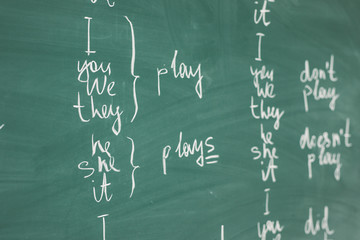 it
I
you
We
they
play
he
she
it
plays
I
it
I
you
We
they
don't
play
he
she
it
doesn't
play
I
you
did